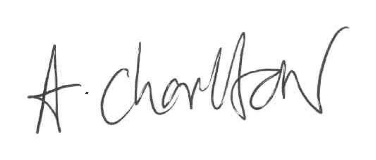 A. Charlton